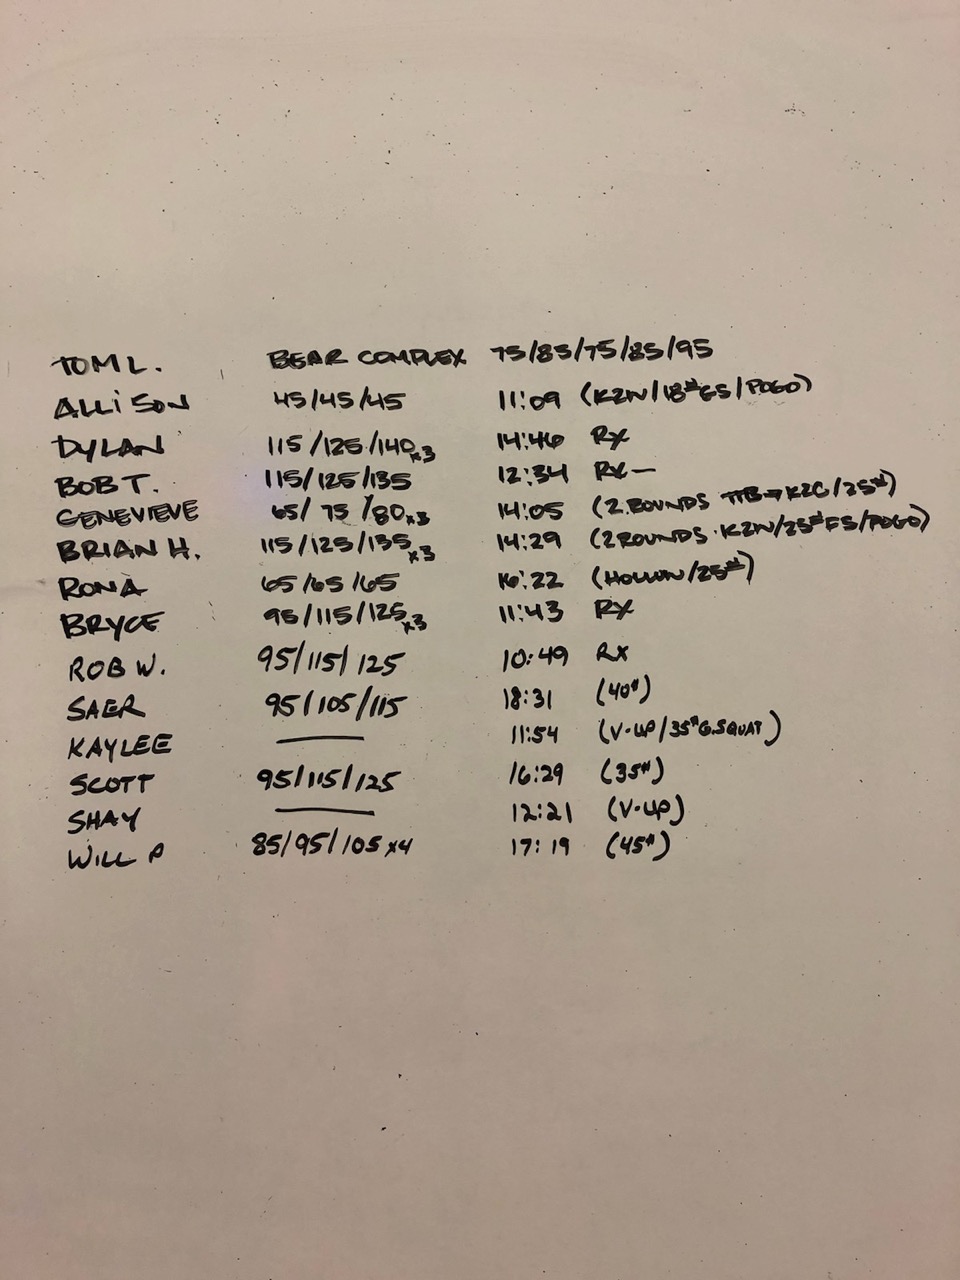 TOM L. BEAR COMPLEX 75/85/75/85/95
ALLISON 45/45/45 11:09 (K2N/18#GS/POGO)
DYLAN 115/125/140x3 14:46 RX
BOB T. 115/125/135 12:34 RX—
GENEVIEVE 65/75/80x3 14:05 (2 ROUNDS TTB→K2C/25#)
BRIAN H. 115/125/135x3 14:29 (2 ROUNDS K2N/25#FS/POGO)
RONA 65/65/65 16:22 (HOLLOW/25#)
BRYCE 95/115/125x3 11:43 RX
ROB W. 95/115/125 10:49 RX
SAER 95/105/115 18:31 (40#)
KAYLEE — 11:54 (V-UP/35#G.SQUAT)
SCOTT 95/115/125 16:29 (35#)
SHAY — 12:21 (V-UP)
WILL P 85/95/105x4 17:19 (45#)